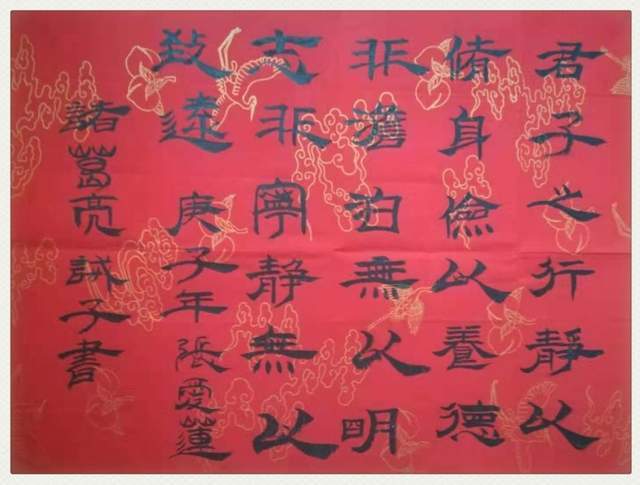 君子之行靜以
脩身儉以養德
非澹泊無以明
志非寧静無以
致遠 庚子年張愛蓮
諸葛亮誡子書